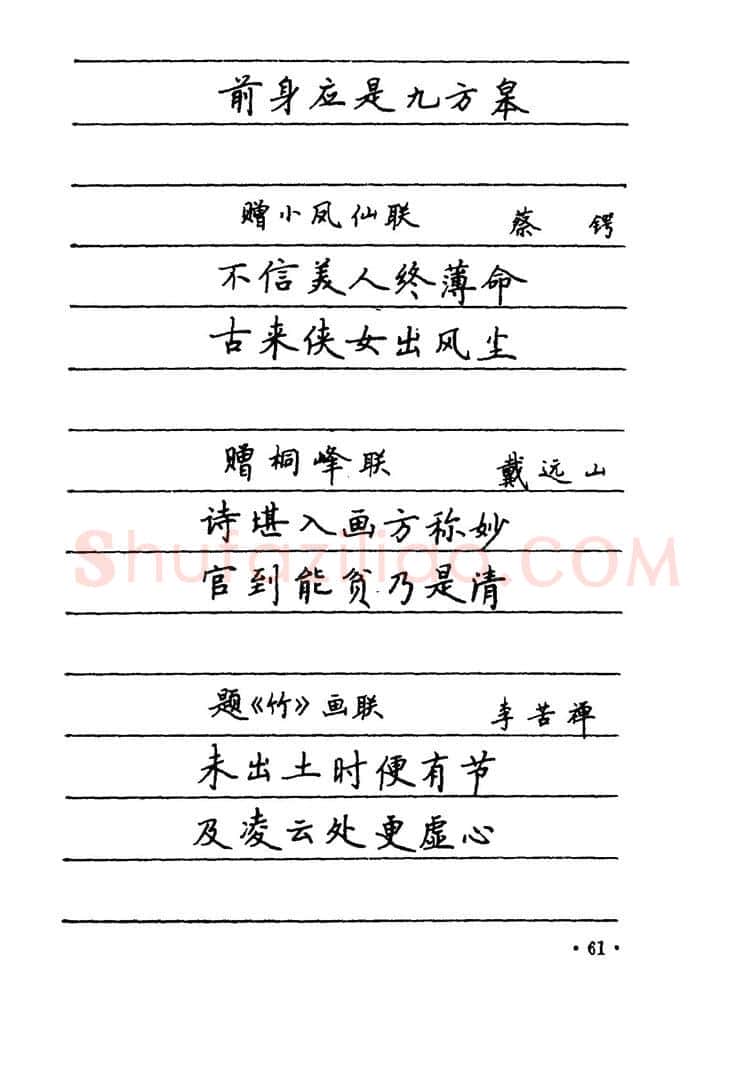 前身应是九方皋
赠小凤仙联 蔡锷
不信美人终薄命
古来侠女出风尘
赠桐峰联 戴远山
诗堪入画方称妙
官到能贫乃是清
Shufaziliao.COM
题《竹》画联 李苦禅
未出土时便有节
及凌云处更虚心
·61·